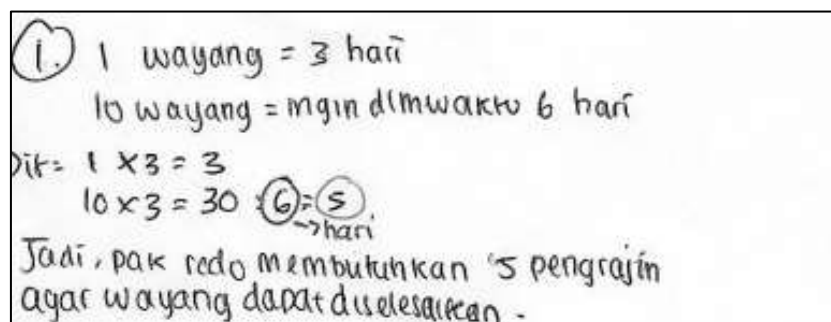 1. 1 wayang = 3 hari
10 wayang = ingin dlmwaktu 6 hari
Dit = 1 x 3 = 3
10 x 3 = 30 : 6 = 5
→ hari
Jadi, pak redo membutuhkan 5 pengrajin
agar wayang dapat diselesaikan.